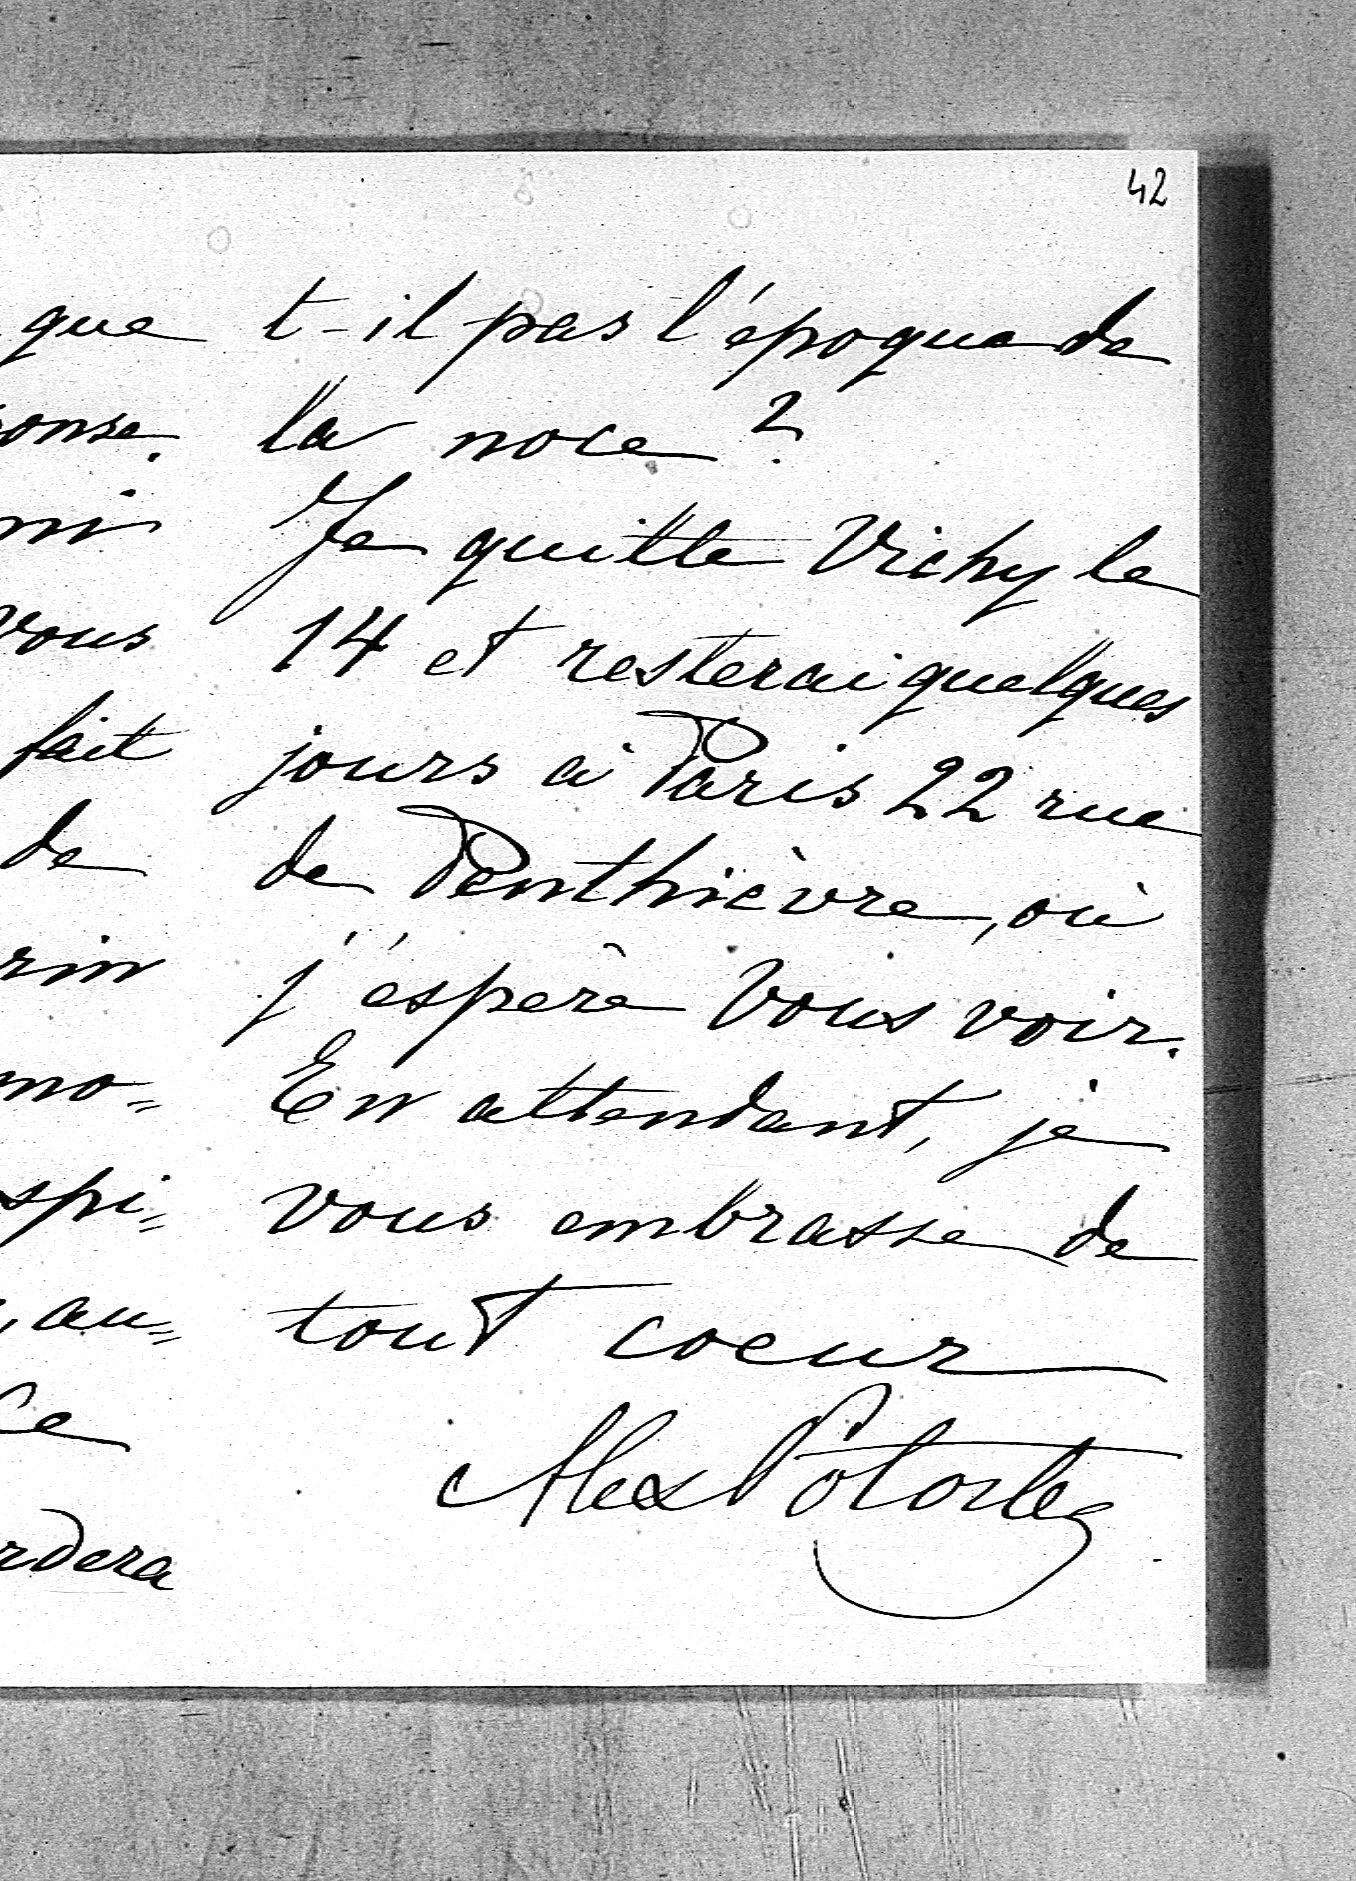 42
que
onse.
ni
vous
fait
de
rin
mo=
spi=
, au=
Ce
rdera
t-il pas l'époque de
la noce ?
Je quitte Vichy le
14 et resterai quelques
jours à Paris 22 rue
de Penthièvre, où
j'éspère vous voir.
En attendant, je
vous embrasse de
tout coeur
Alex